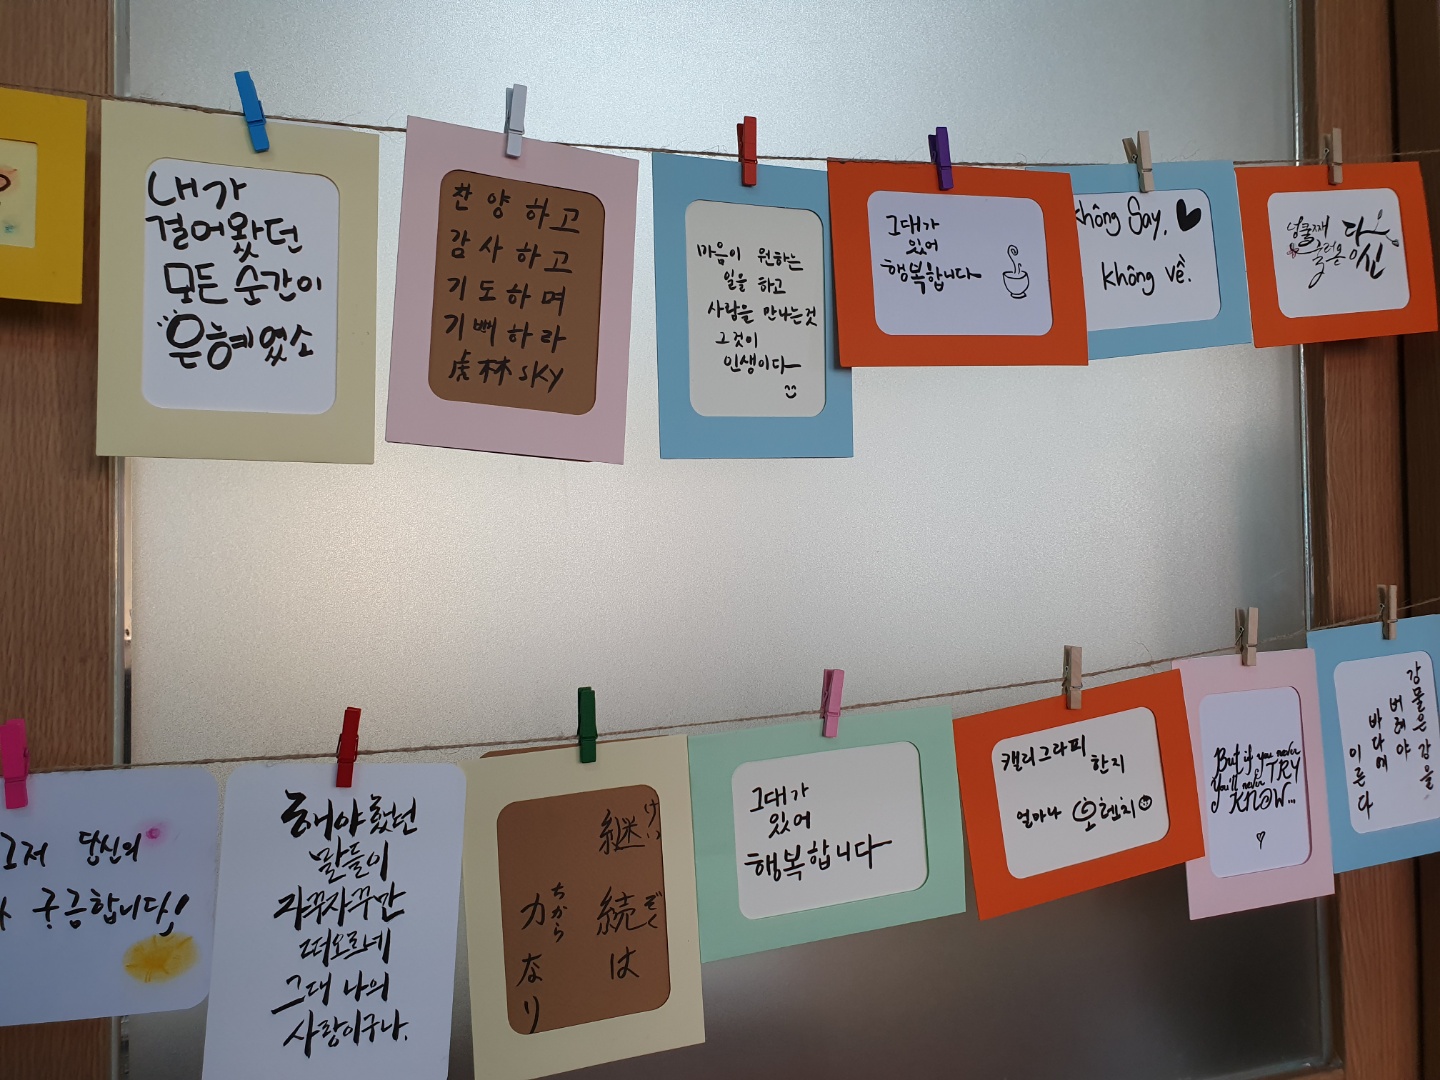 내가
걸어왔던
모든 순간이
은혜였소
찬양하고
감사하고
기도하며
기뻐하라
虎林SKY
마음이 원하는
일을 하고
사람을 만나는것
그것이
인생이다
그대가
있어
행복합니다
không say,
không về.
넝쿨째
굴러온
다신
그저 당신의
궁금합니다!
해야했던
말들이
자꾸자꾸만
떠오르네
그대 나의
사랑이구나.
継続は
けいぞく
力なり
ちから
그대가
있어
행복합니다
캘리그라피
한지
얼마나 오렌지
But if you never
TRY
You'll never
KNOW...
강물은 강을
버려야
바다에
이른다